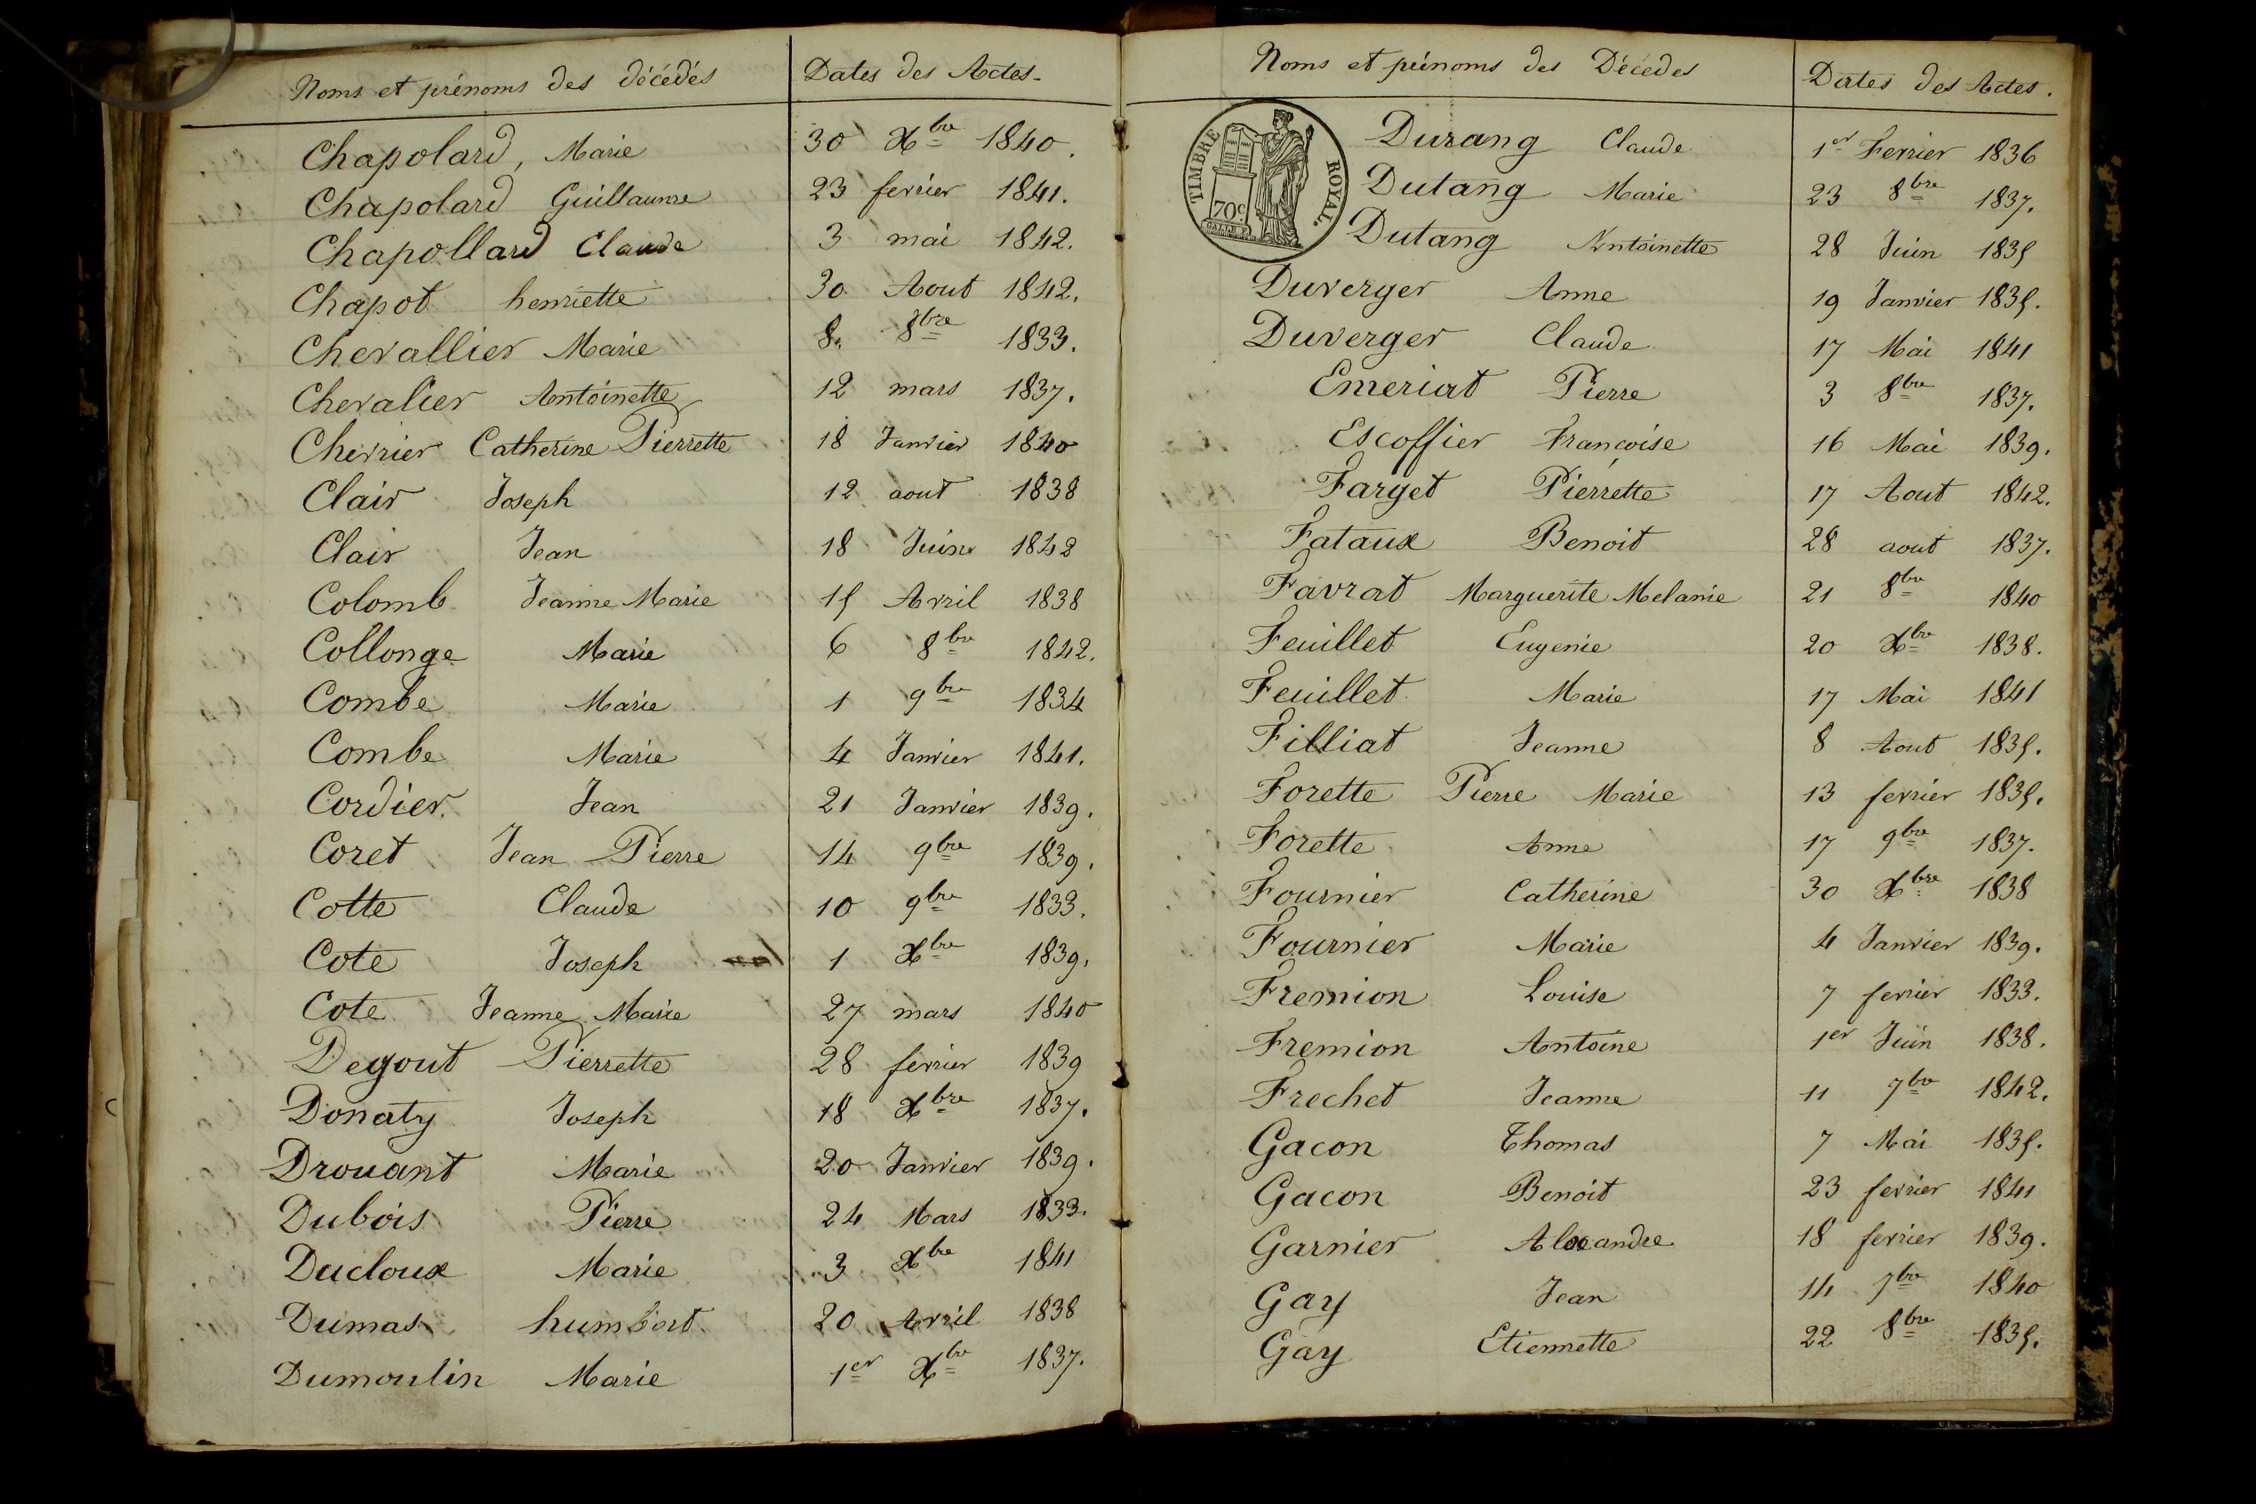 Noms et prénoms des décédés Dates des Actes.
Chapolard, Marie 30 Xbre 1840.
Chapolard Guillaume 23 fevrier 1841.
Chapollard Claude 3 mai 1842.
Chapot henriette 30 Aout 1842.
Chevallier Marie 8 8bre 1833.
Chevalier Antoinette 12 mars 1837.
Chevrier Catherine Pierrette 18 Janvier 1840
Clair Joseph 12 aout 1838
Clair Jean 18 Juin 1842
Colomb Jeanne Marie 15 Avril 1838
Collonge Marie 6 8bre 1842.
Combe Marie 1 9bre 1834
Combe Marie 4 Janvier 1841.
Cordier Jean 21 Janvier 1839.
Coret Jean Pierre 14 9bre 1839.
Cotte Claude 10 9bre 1833.
Cote Joseph 1 Xbre 1839.
Cote Jeanne Marie 27 mars 1840
Degout Pierrette 28 fevrier 1839
Donaty Joseph 18 Xbre 1837.
Drouant Marie 20 Janvier 1839.
Dubois Pierre 24 Mars 1833.
Ducloux Marie 3 Xbre 1841
Dumas humbert 20 Avril 1838
Dumoulin Marie 1er Xbre 1837.
Noms et prénoms des Décedes Dates des Actes.
TIMBRE ROYAL.
70c.
Durang Claude 1er Fevrier 1836
Dutang Marie 23 8bre 1837.
Dutang Antoinette 28 Juin 1835
Duverger Anne 19 Janvier 1835.
Duverger Claude 17 Mai 1841
Emeriat Pierre 3 8bre 1837.
Escoffier Françoise 16 Mai 1839.
Farget Pierrette 17 Aout 1842.
Fataux Benoit 28 aout 1837.
Favrat Marguerite Melanie 21 8bre 1840
Feuillet Eugenie 20 Xbre 1838.
Feuillet Marie 17 Mai 1841
Filliat Jeanne 8 Aout 1835.
Forette Pierre Marie 13 fevrier 1835.
Forette Anne 17 9bre 1837.
Fournier Catherine 30 Xbre 1838
Fournier Marie 4 Janvier 1839.
Fremion Louise 7 fevrier 1833.
Fremion Antoine 1er Juin 1838.
Frechet Jeanne 11 7bre 1842.
Gacon Thomas 7 Mai 1835.
Gacon Benoit 23 fevrier 1841
Garnier Alexandre 18 fevrier 1839.
Gay Jean 14 7bre 1840
Gay Etiennette 22 8bre 1835.